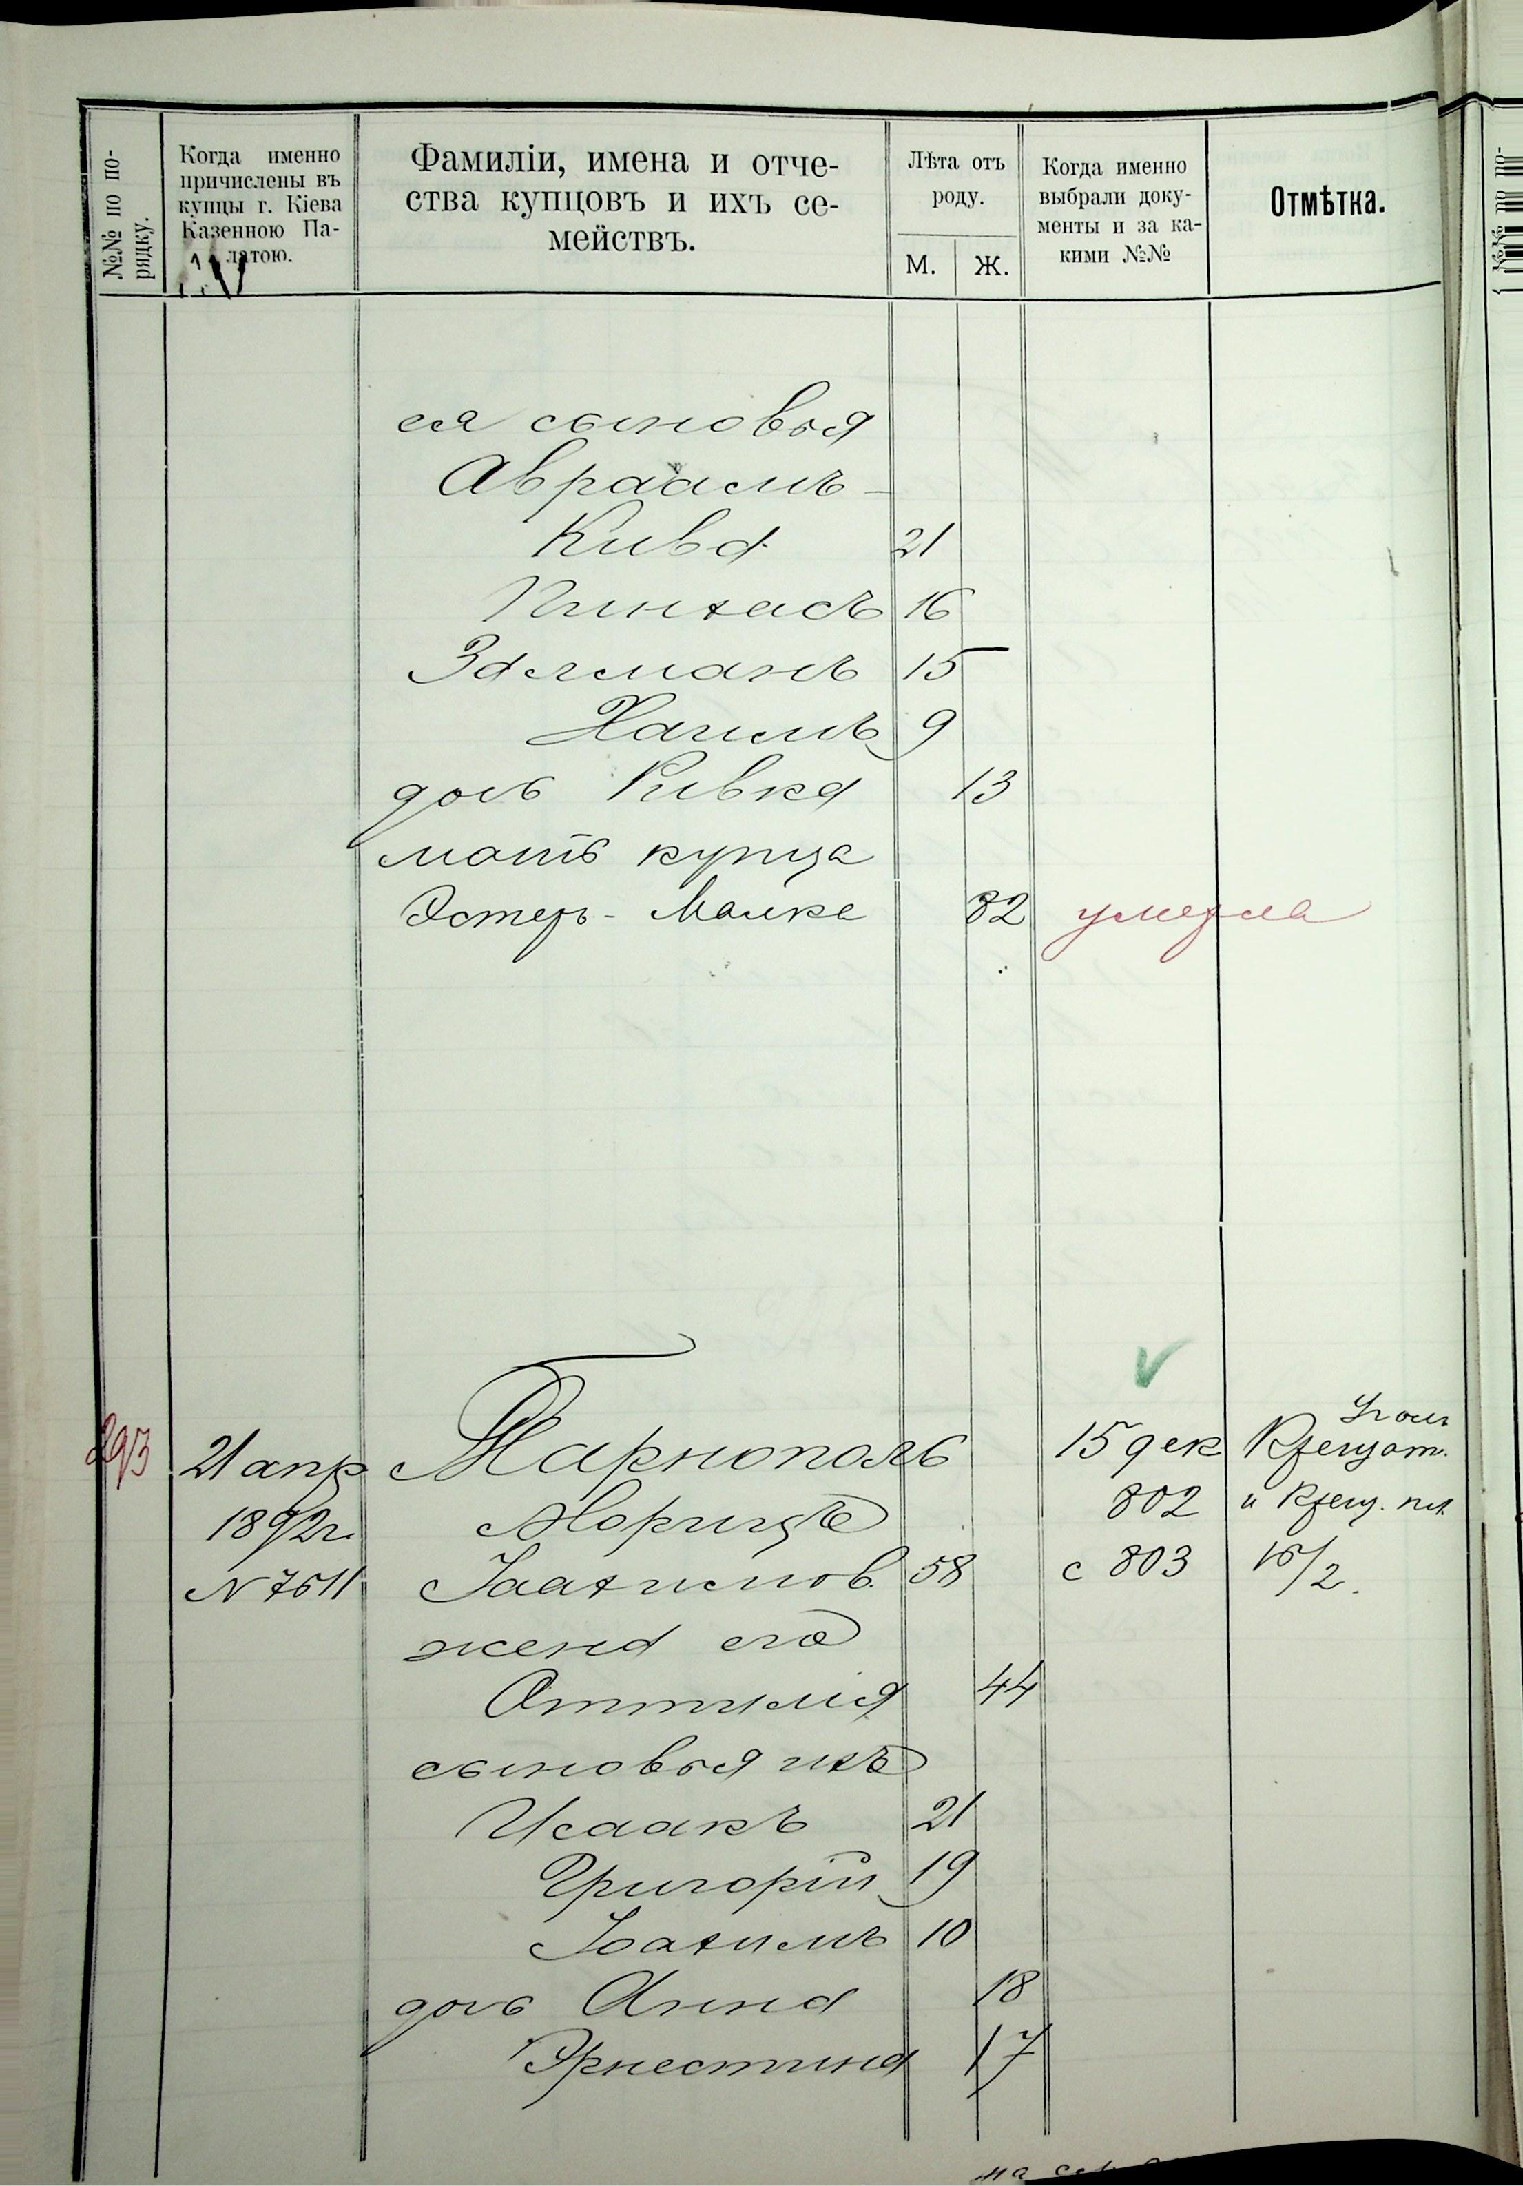 №№ по по-
рядку.
Когда именно
причислены въ
купцы г. Кіева
Казенною Па-
латою.
Фамиліи, имена и отче-
ства купцовъ и ихъ се-
мействъ.
Лѣта отъ
роду.
М. Ж.
Когда именно
выбрали доку-
менты и за ка-
кими №№
Отмѣтка.
ея сыновья
Авраамъ-
Кива 21
Пинхасъ 16
Залманъ 15
Хаимъ 9
дочь Ривка 13
мать купца
Эстеръ-Малка 82 умерла
293 21 апр Тарнополь 15 дек Крещат.
1892 г. Морицъ 802 и Крещ. пл.
N 7511 Іоахимов. 58 с 803 16/2.
жена его
Оттилія 44
сыновья ихъ
Исаакъ 21
Григорій 19
Іоахимъ 10
дочь Анна 18
Эрнестина 17